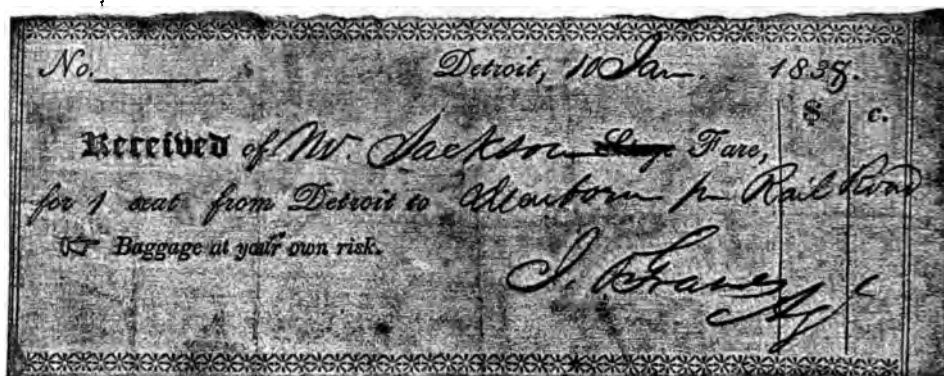 No. Detroit, 10 Jan. 1838.
$ c.
Received of Mr. Jackson Stage Fare,
for 1 seat from Detroit to Dearborn pr Rail Road
☞ Baggage at your own risk.
J. Graves Agt